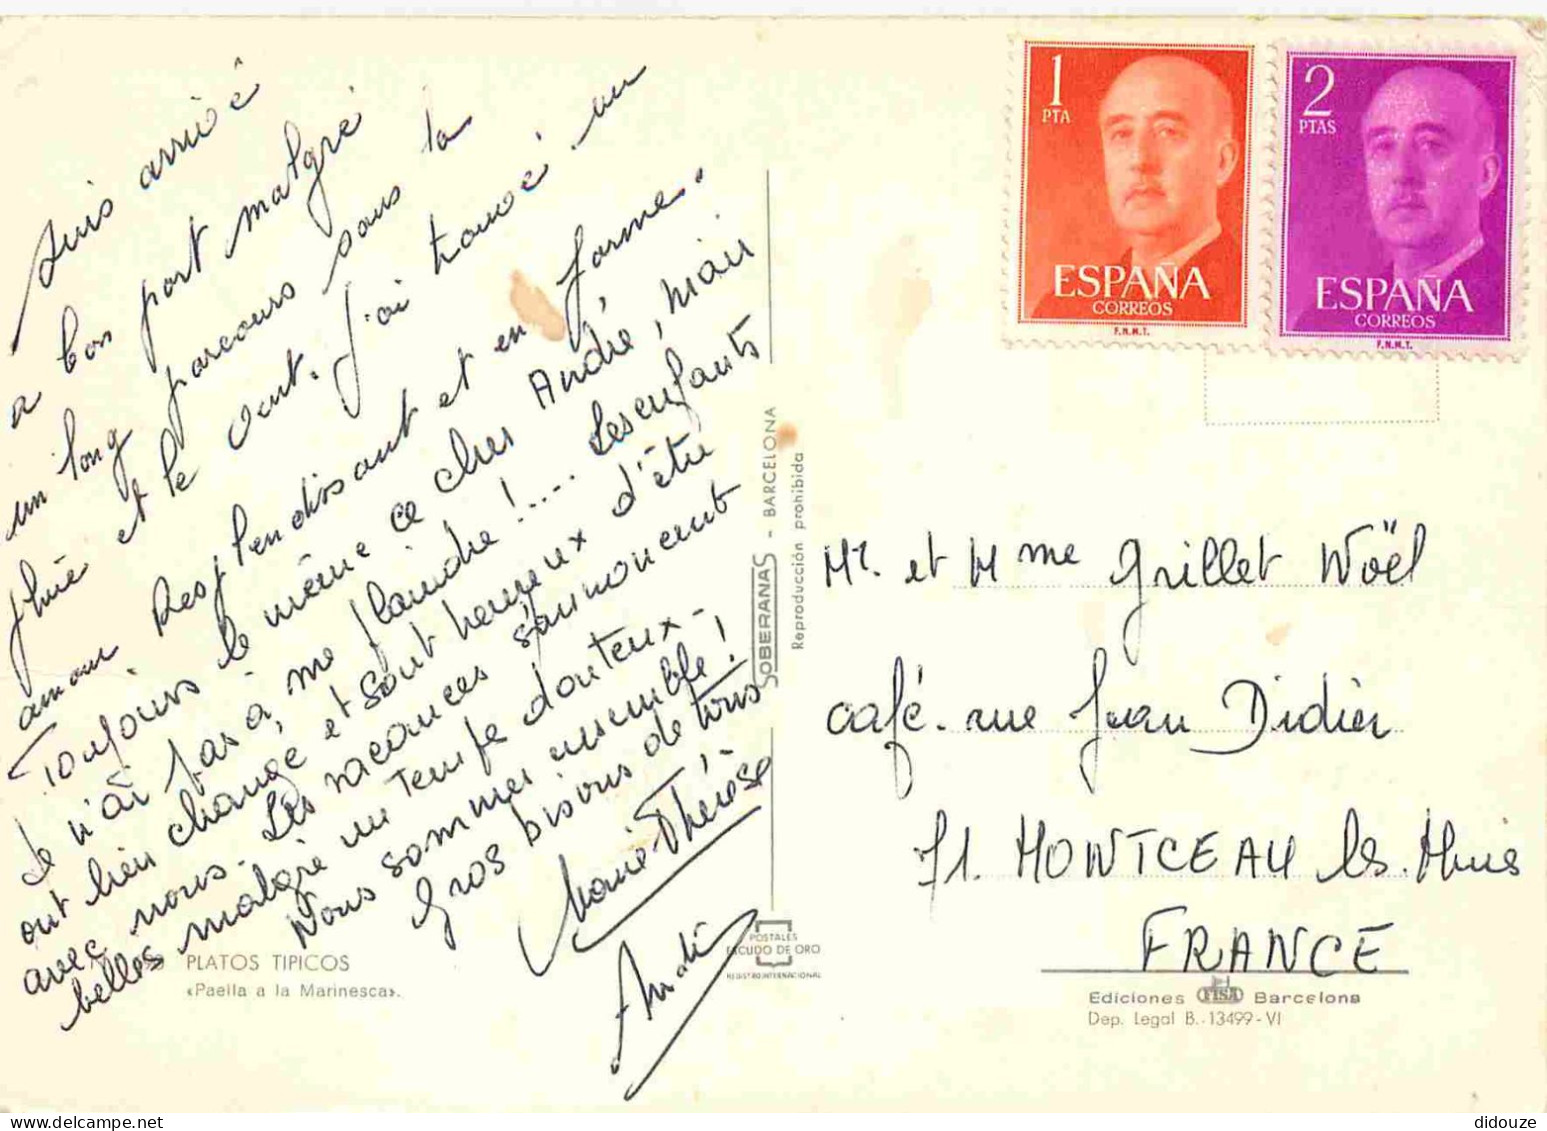 suis arrivé
a bon port malgré
un long parcours sous la
pluie et le vent. J'ai trouvé un
amour resplendissant et en forme.
Toujours le même ce cher André, mais
Je n'ai pas à me plaindre !.... Les enfants
ont bien changé et sont heureux d'être
avec nous. Les vacances s'annoncent
belles malgré un temps douteux -
Nous sommes ensemble !
Gros bisous de tous
Marie Thérèse
André
PLATOS TIPICOS
«Paella a la Marinesca».
SOBERANAS - BARCELONA
Reproducción prohibida
POSTALES
ESCUDO DE ORO
REGISTRO INTERNACIONAL
1
PTA
ESPAÑA
CORREOS
F.N.M.T.
2
PTAS
ESPAÑA
CORREOS
F.N.M.T.
Mr. et Mme Grillet Noël
café. rue Jean Didier
71. MONTCEAU les. Mines
FRANCE
Ediciones FISA Barcelona
Dep. Legal B.-13499-VI
didouze